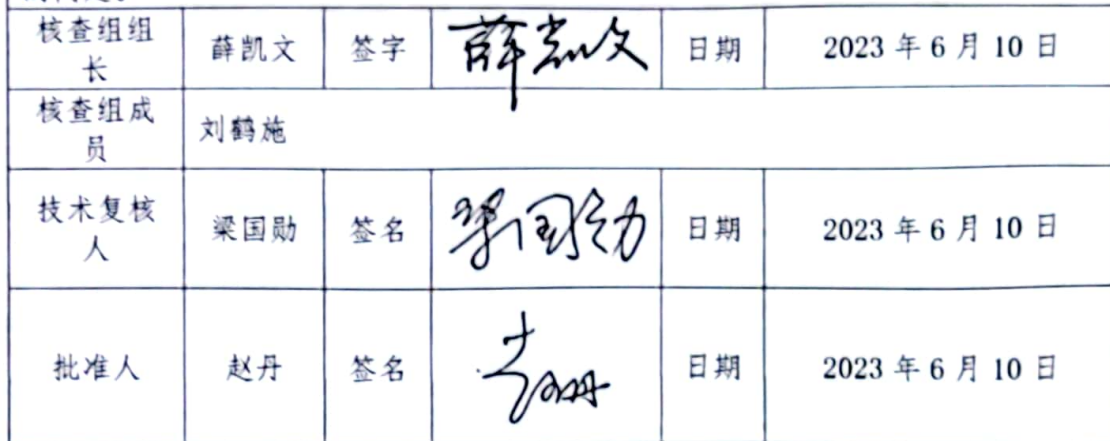 核查组组长 薛凯文 签字 薛凯文 日期 2023 年 6 月 10 日
核查组成员 刘鹤施
技术复核人 梁国勋 签名 梁国勋 日期 2023 年 6 月 10 日
批准人 赵丹 签名 赵丹 日期 2023 年 6 月 10 日